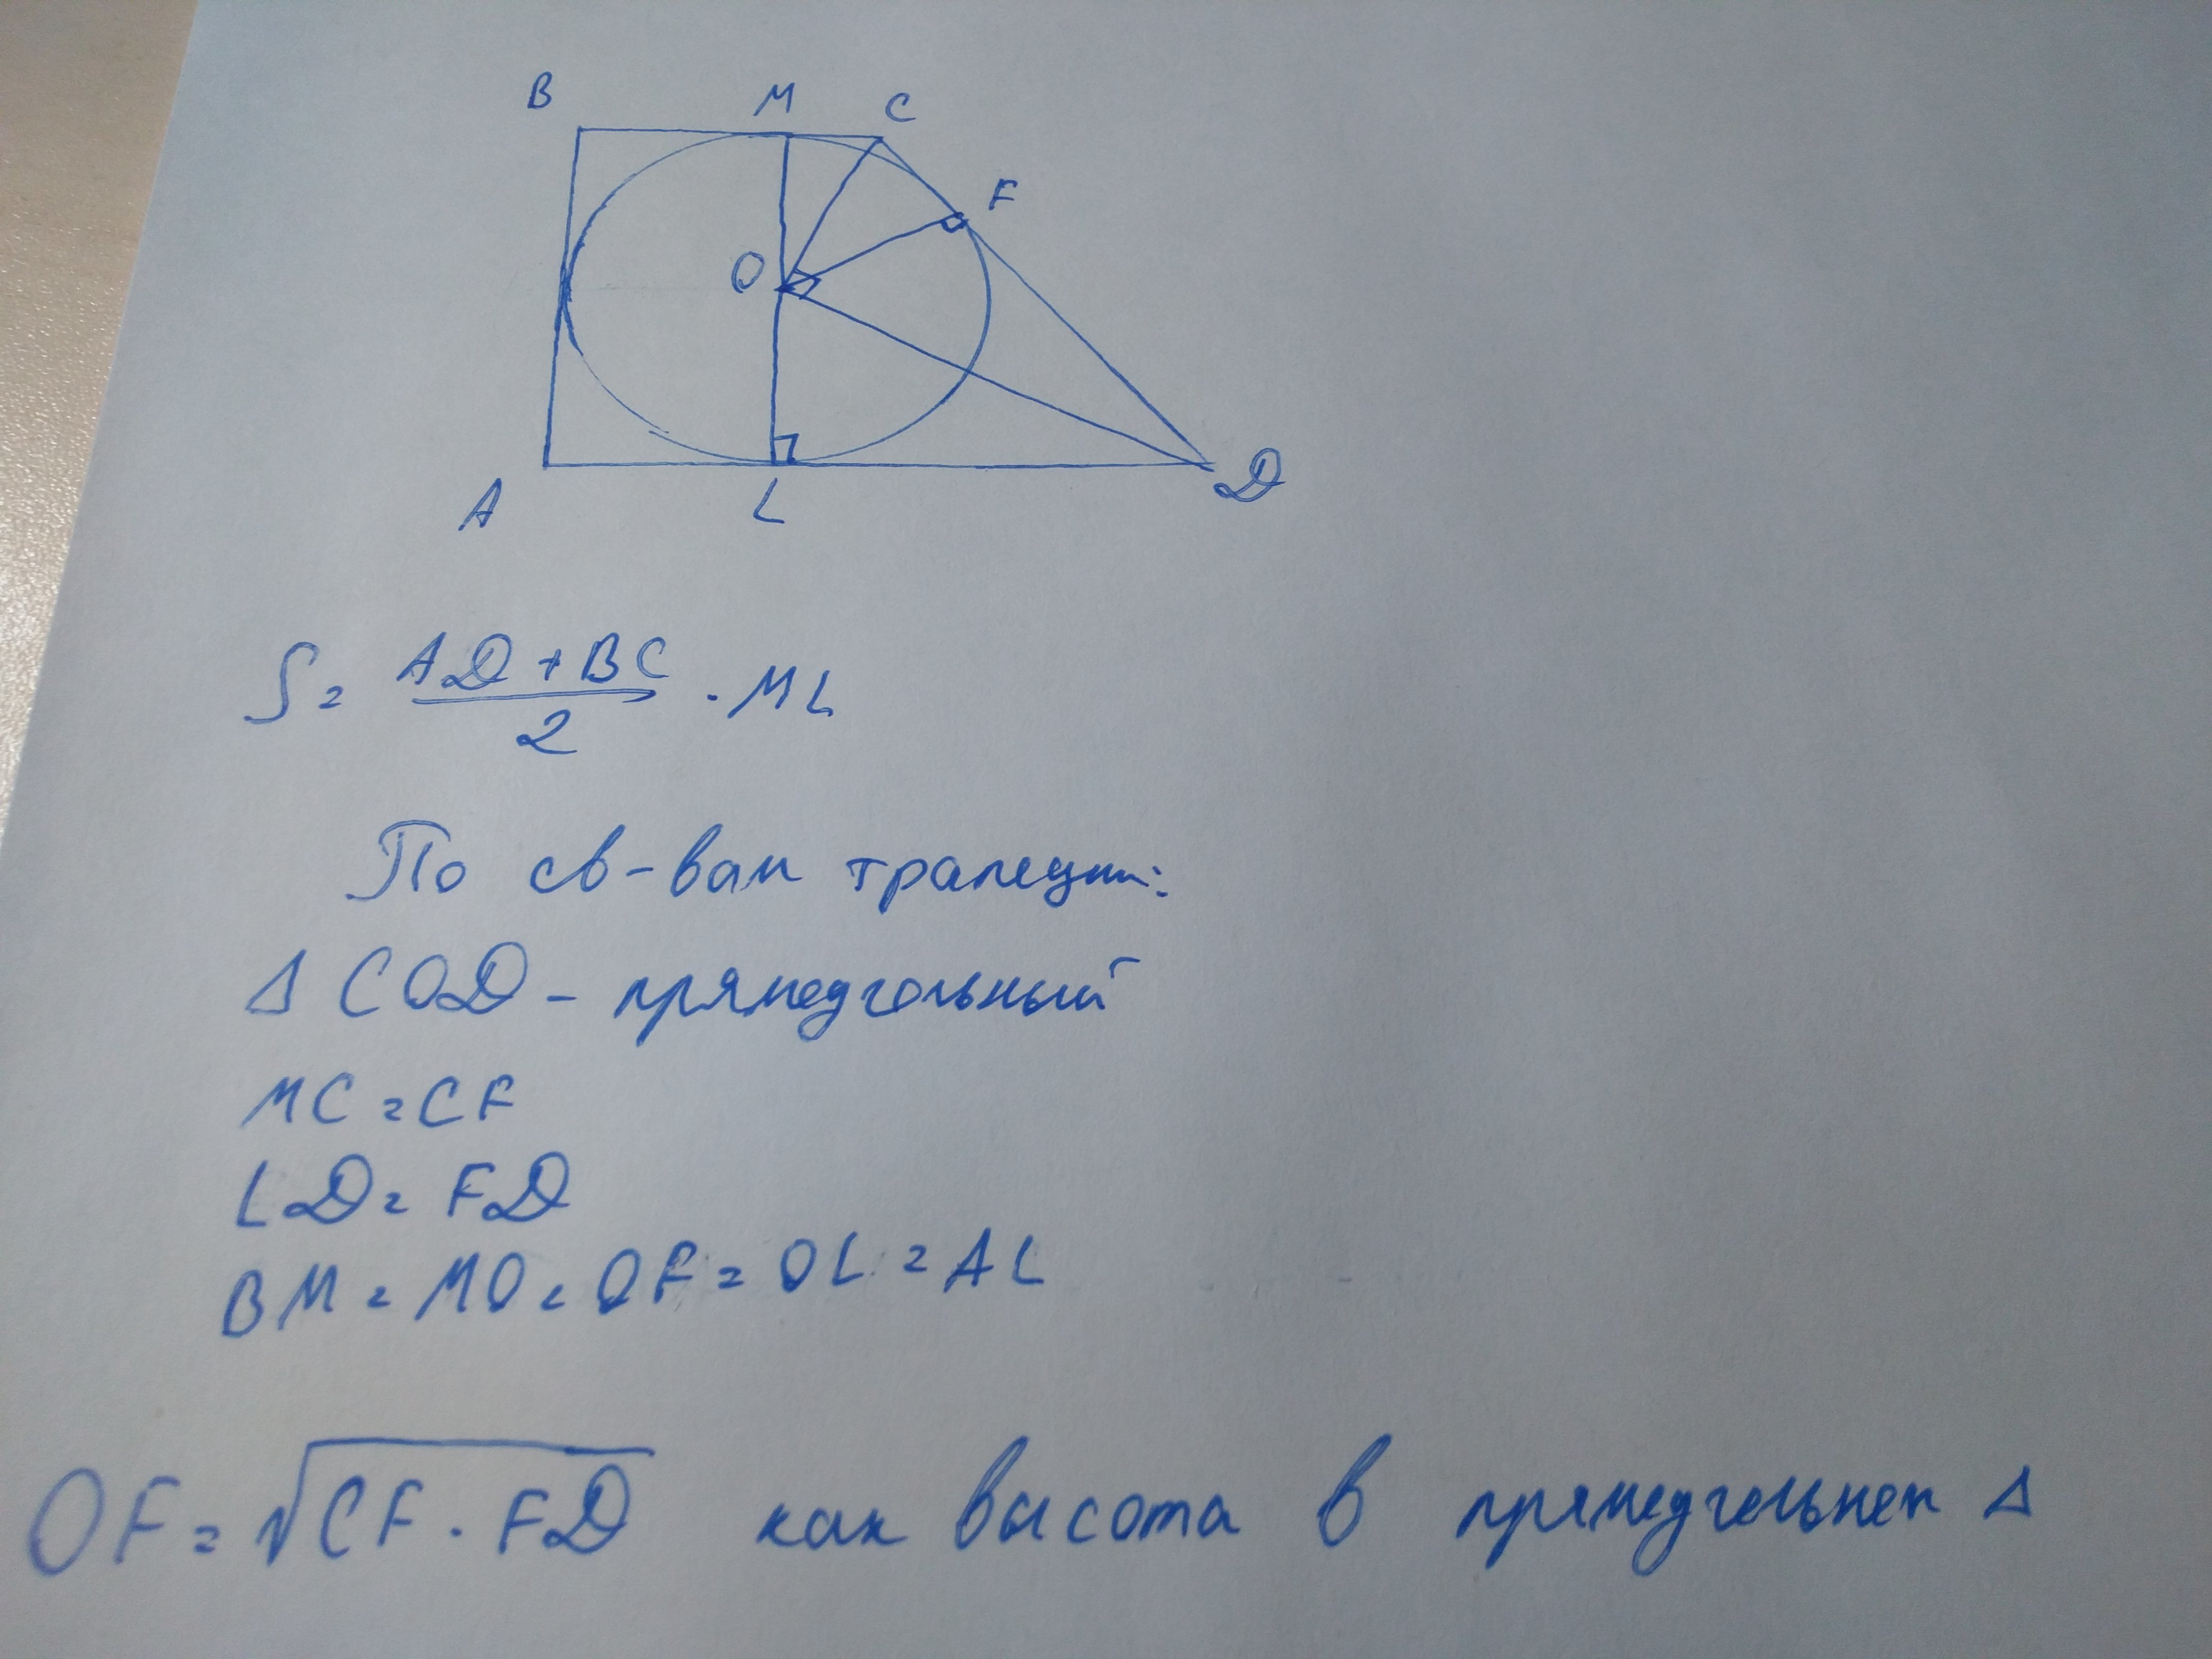 B M C
F
O
A L D
S = (AD + BC)/2 · ML
По св-вам трапеции:
Δ COD - прямоугольный
MC = CF
LD = FD
BM = MO = OF = OL = AL
OF = √(CF · FD) как высота в прямоугольном Δ